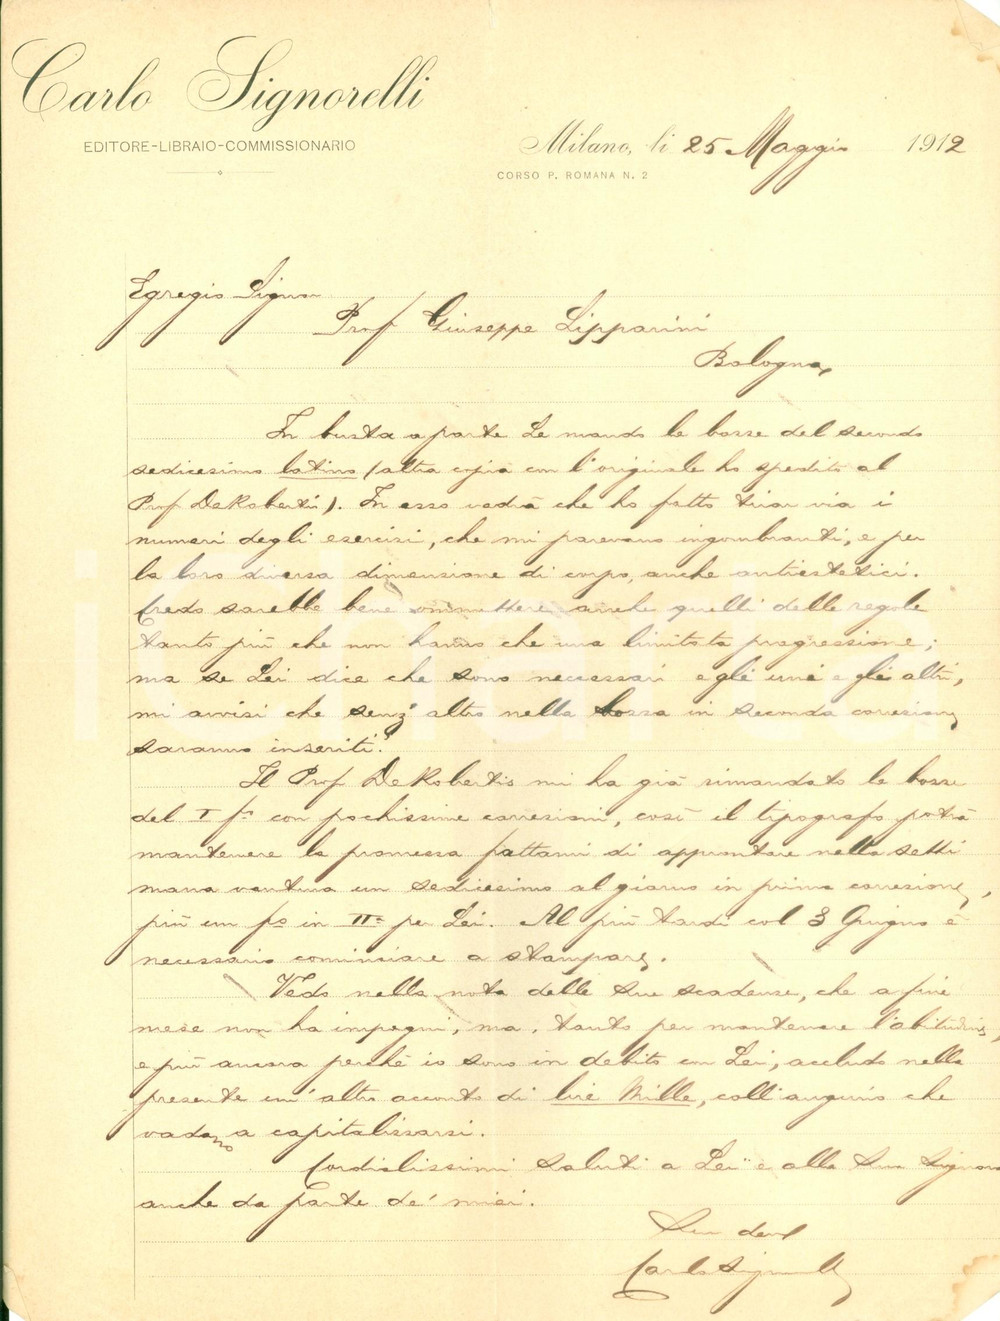 Carlo Signorelli
EDITORE-LIBRAIO-COMMISSIONARIO
Milano, li 25 Maggio 1912
CORSO P. ROMANA N. 2
Egregio Signor
Prof Giuseppe Lipparini
Bologna,
In busta a parte Le mando le bozze del secondo
sedicesimo latino (altra copia con l'originale ho spedito al
Prof DeRobertis). In esso vedrà che ho fatto tirar via i
numeri degli esercizi, che mi parevano ingombranti, e per
la loro diversa dimensione di corpo, anche antiestetici.
Credo sarebbe bene ommettere anche quelli delle regole
tanto più che non hanno che una limitata progressione;
ma se Lei dice che sono necessari e gli uni e gli altri,
mi avvisi che senz'altro nella bozza in seconda correzione
saranno inseriti.
Il Prof DeRobertis mi ha già rimandato le bozze
del I fo con pochissime correzioni, così il tipografo potrà
mantenere la promessa fattami di approntare nella setti
mana ventura un sedicesimo al giorno in prima correzione,
più un fo in IIa per Lei. Al più tardi col 3 Giugno è
necessario cominciare a stampare.
Vedo nella nota delle Sue scadenze, che a fine
mese non ha impegni, ma, tanto per mantenere l'abitudine,
e più ancora perchè io sono in debito con Lei, accludo nella
presente un'altro acconto di lire Mille, coll'augurio che
vadano a capitalizzarsi.
Cordialissimi saluti a Lei e alla Sua Signora
anche da parte de' miei.
Suo dev
Carlo Signorelli